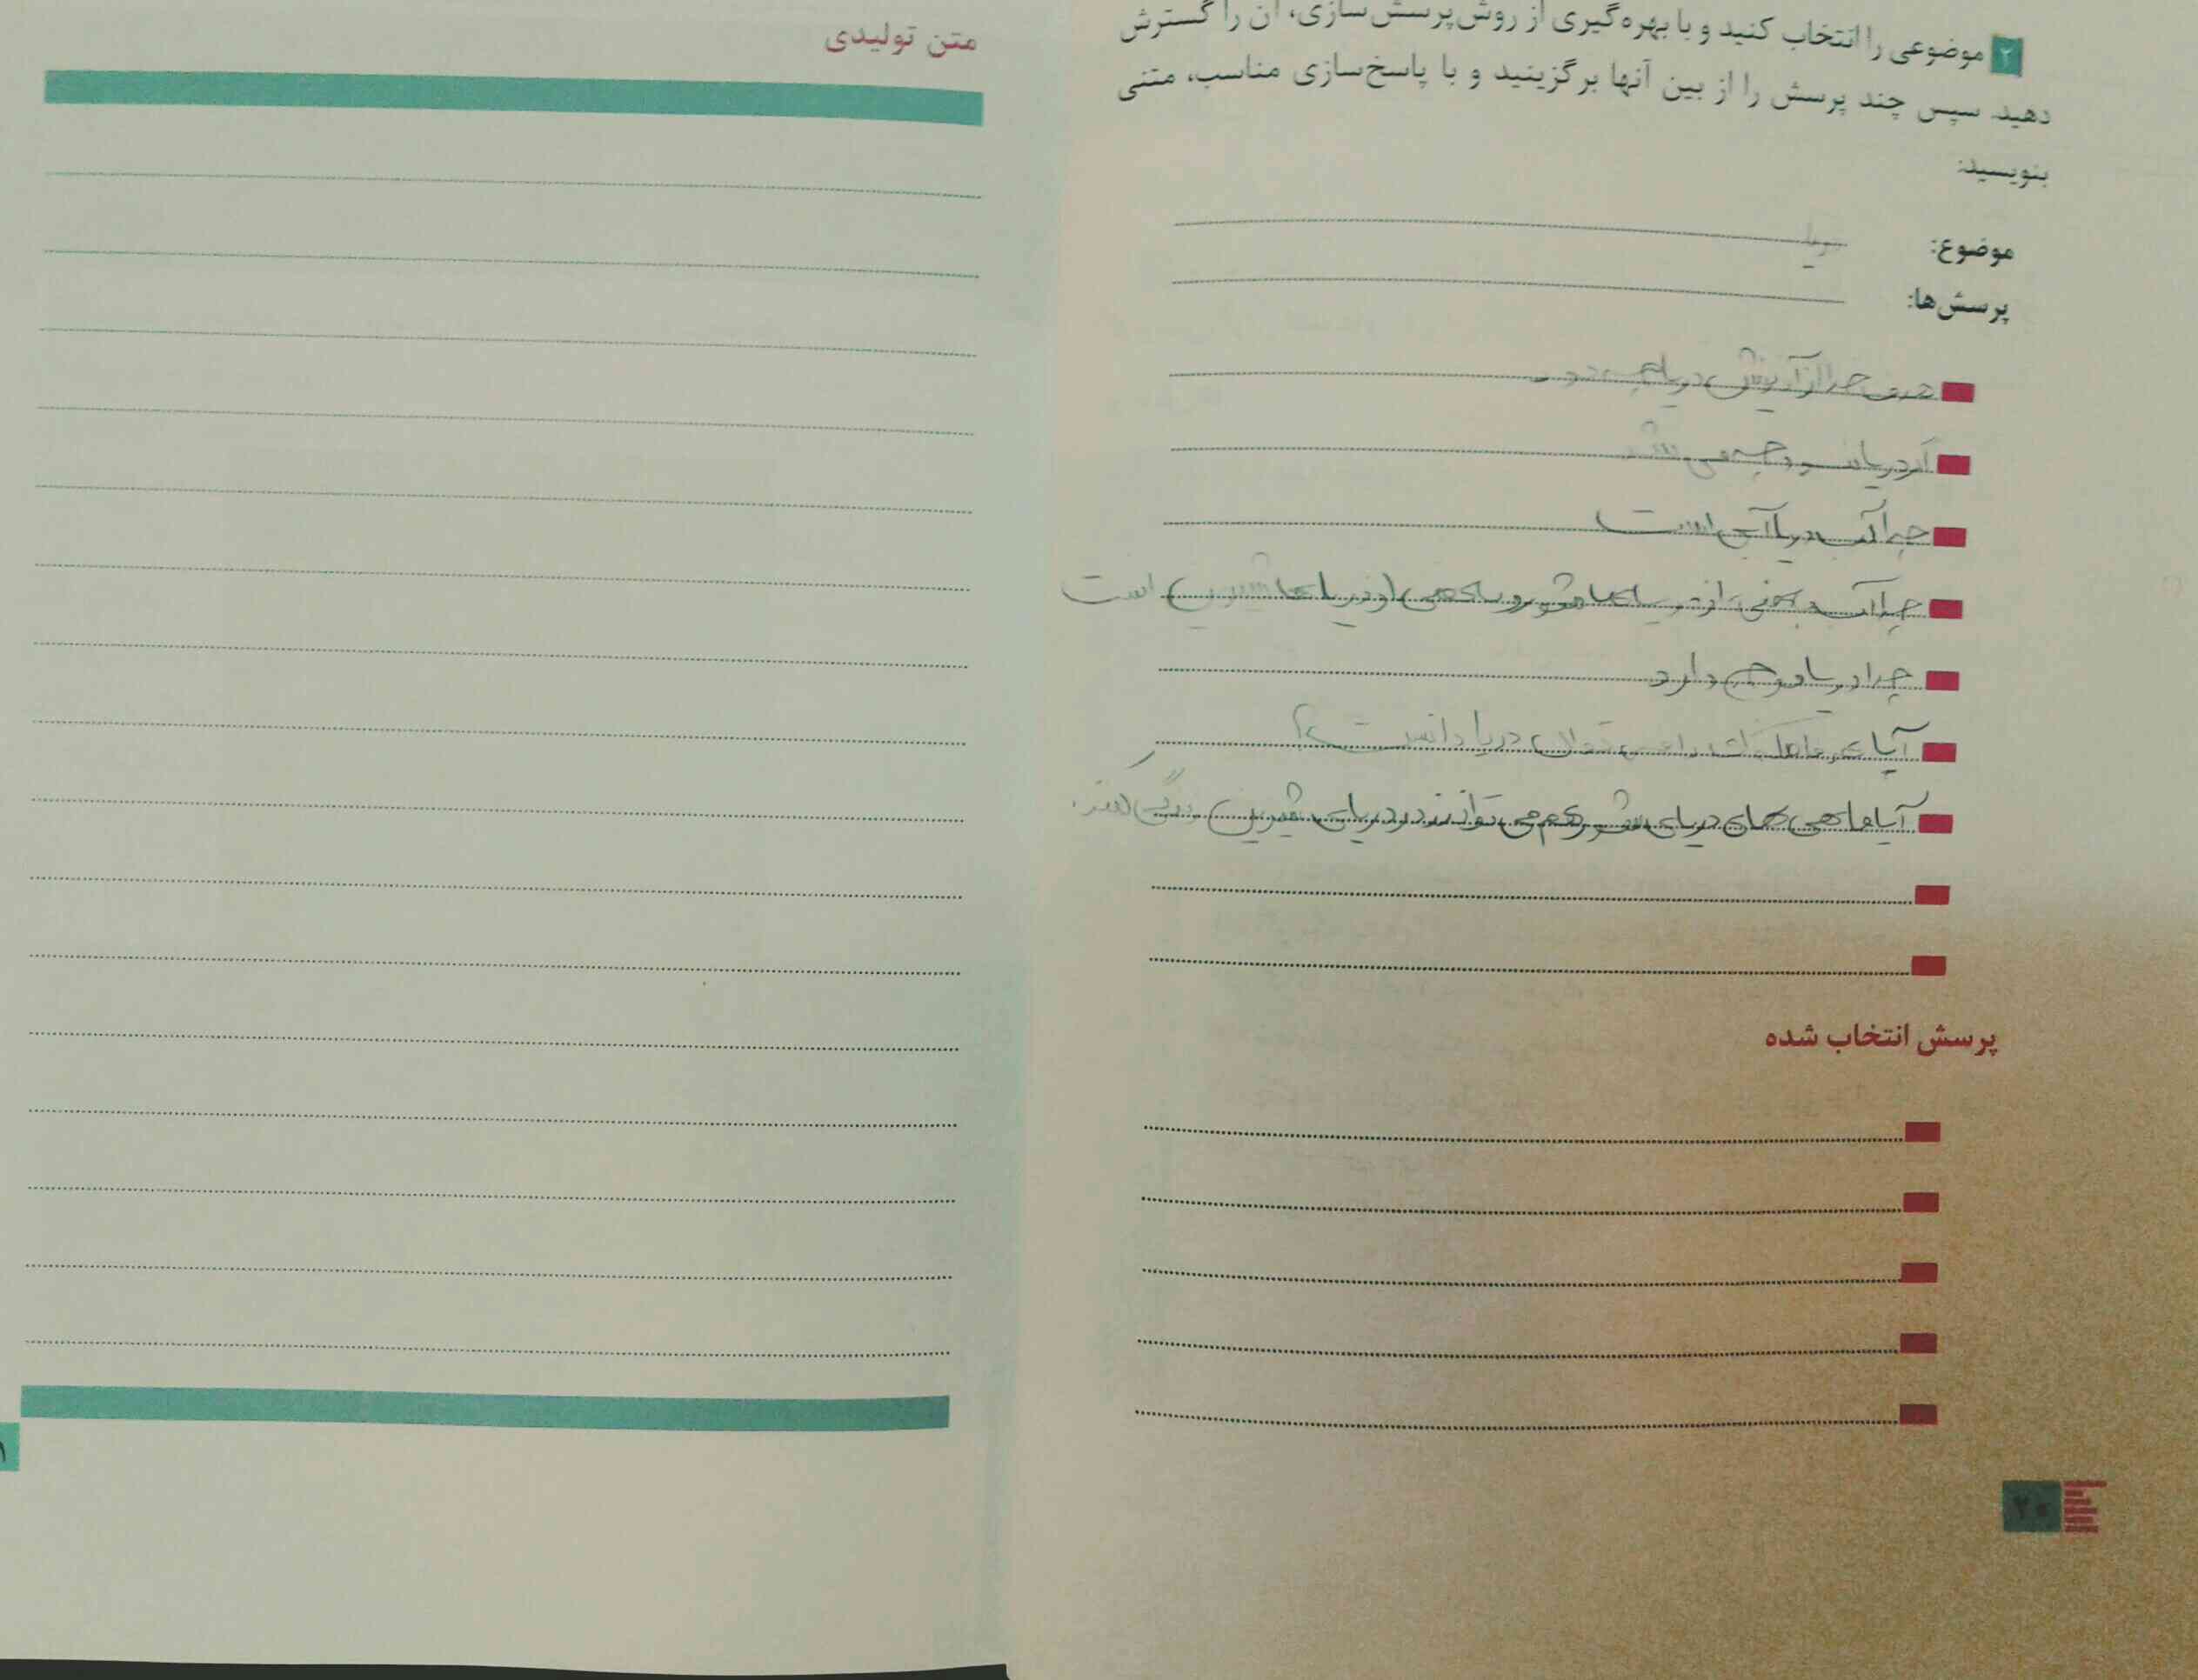 ۲ موضوعی را انتخاب کنید و با بهره‌گیری از روش پرسش‌سازی، آن را گسترش
دهید. سپس چند پرسش را از بین آنها برگزینید و با پاسخ‌سازی مناسب، متنی
بنویسید:
موضوع: دریا
پرسش‌ها:
هدف خدا از آفرینش دریا چه بود
اگر دریا نبود چه می شد
چرا آب دریا آبی است
چرا آب بعضی از دریاها شور و بعضی از دریاها شیرین است
چرا دریا موج دارد
آیا دریا دانست؟
آیا ماهی های دریای شور هم می توانند در دریای شیرین زندگی کنند.
پرسش انتخاب شده
۲۰
متن تولیدی